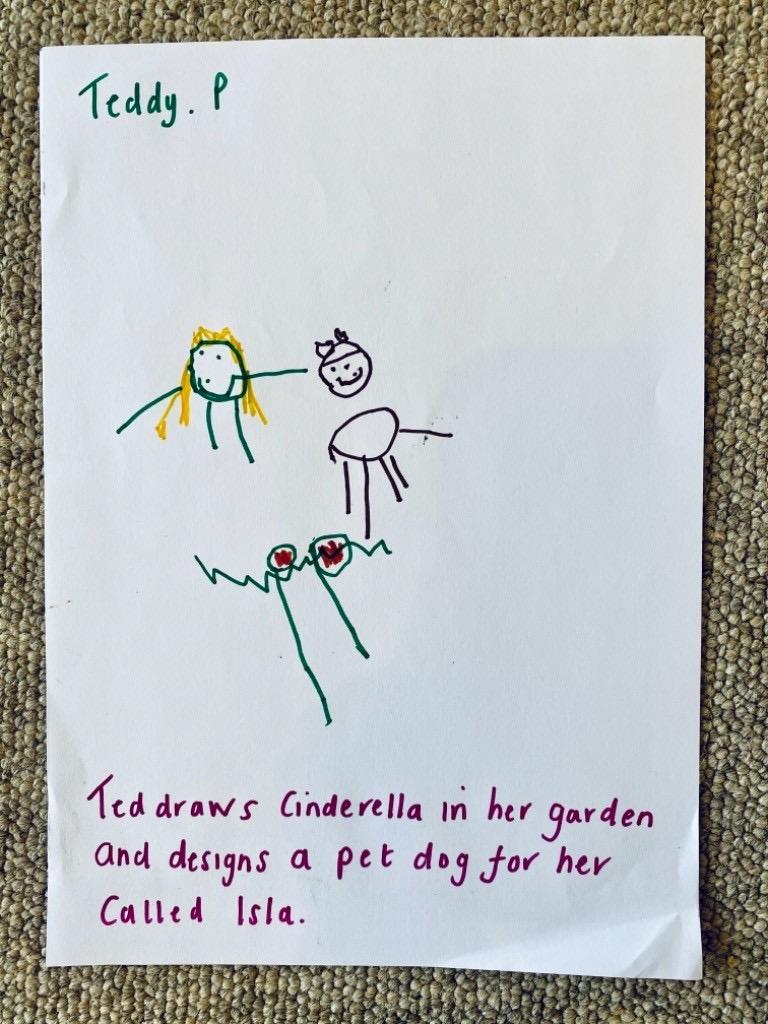 Teddy. P
Ted draws Cinderella in her garden
and designs a pet dog for her
Called Isla.